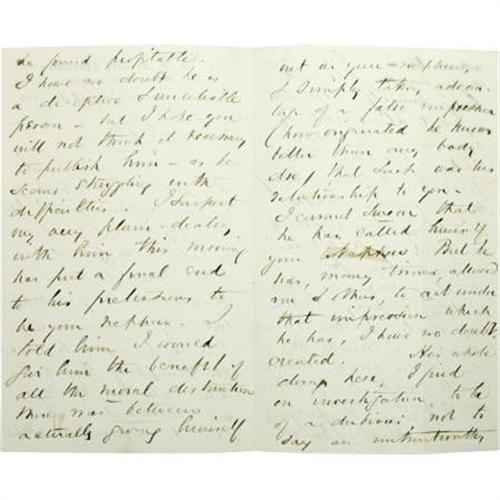 be found profitable.
I have no doubt he is
a deceptive & unreliable
person - but I hope you
will not think it necessary
to publish him - as he
seems struggling with
difficulties. I suspect
my very plain dealing
with him this morning
has put a final end
to his pretensions to
be your nephew. I
told him I would
give him the benefit of
all the moral distinction
there was between
actually giving himself
out as your nephew,
& simply taking advan-
tage of a false impression
(how originated he knows
better than any body
else) that such was his
relationship to you.
I cannot swear that
he has called himself
your Nephew. But he
has, many times, allowed
me & others, to act under
that impression which
he has, I have no doubt,
created. His whole
doing here, I find
on investigation, to be
of a dubious, not to
say an untrustworthy